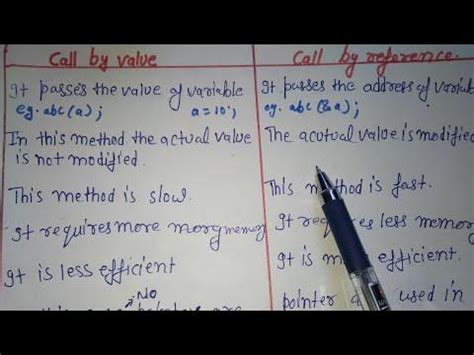 Call by value
It passes the value of variable
eg. abc(a); a=10;
In this method the actual value
is not modified.
This method is slow.
It requires more morgmemory
It is less efficient
No
are
Call by reference.
It passes the address of variabl
eg. abc(&a);
The acutual value is modified
This method is fast.
It requires less memor
It is efficient.
pointer used in